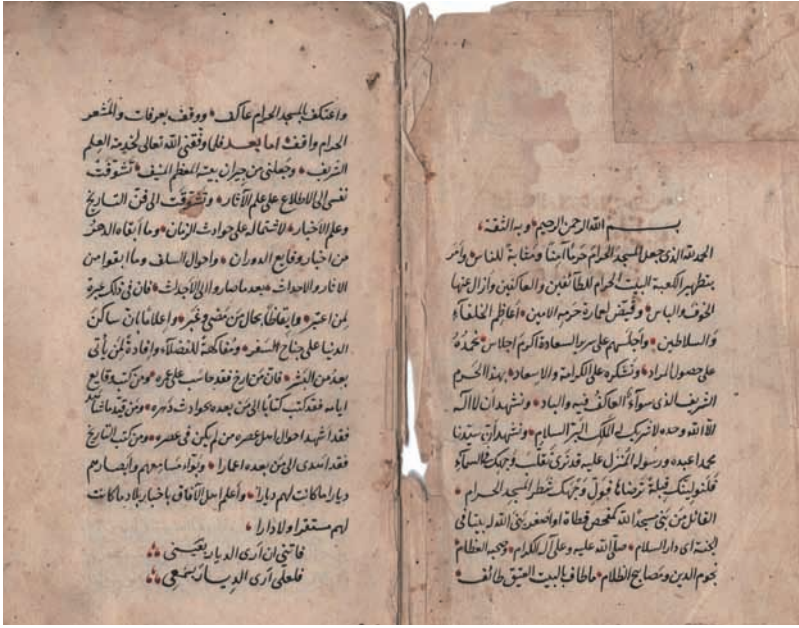 بسم الله الرحمن الرحيم وبه الثقة
الحمد لله الذى جعل المسجد الحرام حرما آمنا ومثابة للناس وأمر
بتطهير الكعبة البيت الحرام للطائفين والعاكفين وازال عنها
الخوف والباس وقيض لعمارة حرمه الامين أعاظم الخلفاء
والسلاطين وأجلسهم على سرير السعادة اكرم اجلاس نحمده
على حصول المراد ونشكره على الكرامة والاسعاد بهذا الحرم
الشريف الذى سوآء العاكف فيه والباد ونشهد أن لا اله
الا الله وحده لا شريك له الملك البر السلام ونشهد أن سيدنا
محمدا عبده ورسوله المنزل عليه قد نرى تقلب وجهك فى السمآء
فلنولينك قبلة ترضاها فول وجهك شطر المسجد الحرام
القائل من بنى مسجدا لله كمفحص قطاة او اصغر بنى الله له بيتا فى
الجنة اى دار السلام صلى الله عليه وعلى آله الكرام وصحبه العظام
نجوم الدين ومصابيح الظلام ما طاف بالبيت العتيق طائف
واعتكف بالمسجد الحرام عاكف ووقف بعرفات والمشعر
الحرام واقف اما بعد فلما وفقنى الله تعالى لخدمة العلم
الشريف وجعلنى من جيران بيته المعظم المنيف تشوقت
نفسى الى الاطلاع على علم الآثار وتشوقت الى فن التاريخ
وعلم الأخبار لاشتماله على حوادث الزمان وما أبقاه الدهر
من اخبار وقايع الدوران واحوال السلف وما ابقوا من
الاثار والاحداث بعد ما صاروا الى الأجداث فان فى ذلك عبرة
لمن اعتبر وايقاظا بحال من مضى وغبر واعلاما بان ساكن
الدنيا على جناح السفر ومفاكهة للفضلاء وافادة لمن يأتى
بعد من البشر فان من ارخ فقد حاسب على عمره ومن كتب وقايع
ايامه فقد كتب كتابا الى من بعده بحوادث دهره ومن قيد ما شاهد
فقد اشهد احوال اهل عصره من لم يكن فى عصره ومن كتب التاريخ
فقد اهدى الى من بعده اعمارا وبوأ مسامعهم وأبصارهم
ديارا ما كانت لهم ديارا وأعلم اهل الآفاق باخبار بلاد ما كانت
لهم مستقرا ولا دارا
فاتنى ان أرى الديار بعينى
فلعلى أرى الديار بسمعى